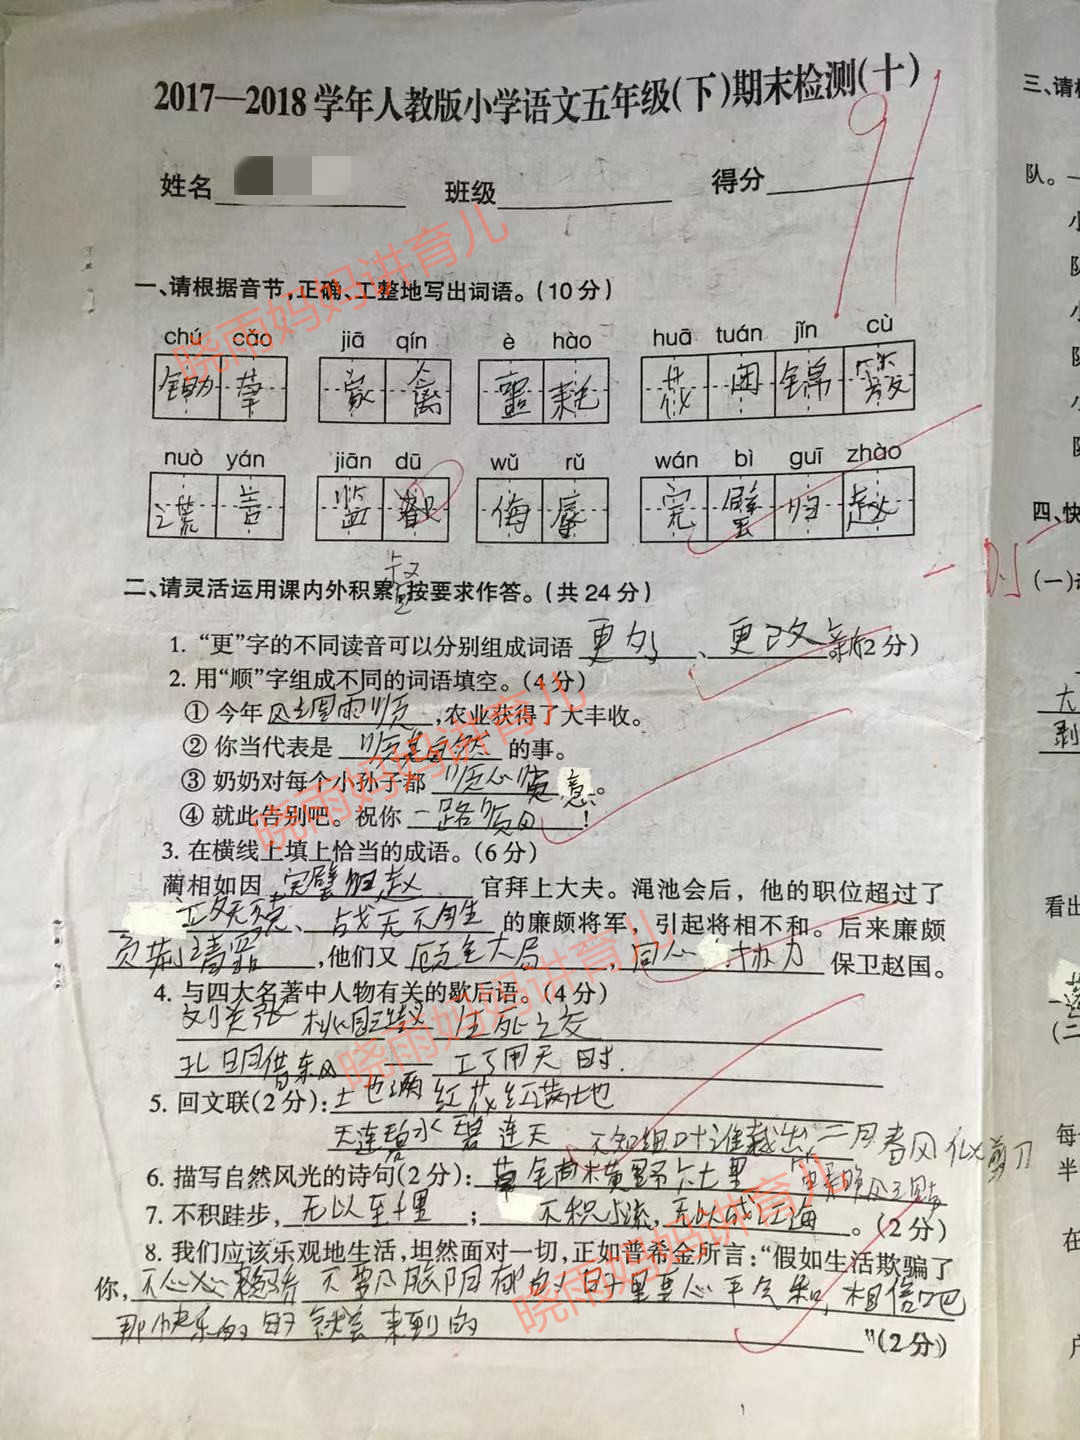 2017—2018学年人教版小学语文五年级(下)期末检测(十)
91
姓名 班级 得分
一、请根据音节,正确、工整地写出词语。(10分)
chú cǎo jiā qín è hào huā tuán jǐn cù
锄草 家禽 噩耗 花团锦簇
nuò yán jiān dū wǔ rǔ wán bì guī zhào
监 侮辱 完璧归赵
二、请灵活运用课内外积累,按要求作答。(共24分)
1. “更”字的不同读音可以分别组成词语 更为 、 更改 (2分)
2. 用“顺”字组成不同的词语填空。(4分)
① 今年 风调雨顺 ,农业获得了大丰收。
② 你当代表是 顺其自然 的事。
③ 奶奶对每个小孙子都 顺心 意 。
④ 就此告别吧。祝你 一路顺风 !
3. 在横线上填上恰当的成语。(6分)
蔺相如因 完璧归赵 官拜上大夫。渑池会后，他的职位超过了
、 战无不胜 的廉颇将军，引起将相不和。后来廉颇
负荆请罪 ,他们又 顾全大局 , 同心协力 保卫赵国。
4. 与四大名著中人物有关的歇后语。(4分)
刘关张桃园结义 生死之交
孔明借东风 巧用天时.
5. 回文联(2分): 红花红满地
天连碧水碧连天 不知细叶谁裁出 二月春风似剪刀
6. 描写自然风光的诗句(2分): 草铺横野六七里
7. 不积跬步, 无以至千里 ; 不积小流,无以成江海 。(2分)
8. 我们应该乐观地生活，坦然面对一切,正如普希金所言:“假如生活欺骗了
你, 不 心平气和, 相信吧
那快乐的日子就会来到的 ”(2分)
三、请根
队。
四、快
(一)
看出
(二
每
半
在
晓雨妈妈讲育儿
晓雨妈妈讲育儿
晓雨妈妈讲育儿
晓雨妈妈讲育儿